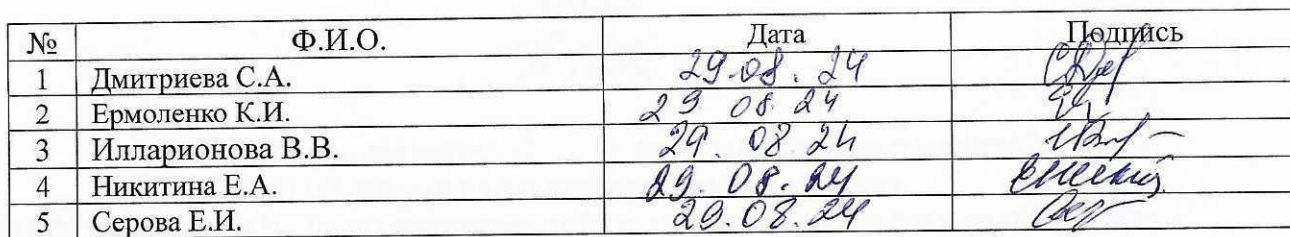 № Ф.И.О. Дата Подпись
1 Дмитриева С.А. 29.08.24
2 Ермоленко К.И. 29 08.24
3 Илларионова В.В. 29.08.24
4 Никитина Е.А. 29.08.24
5 Серова Е.И. 29.08.24